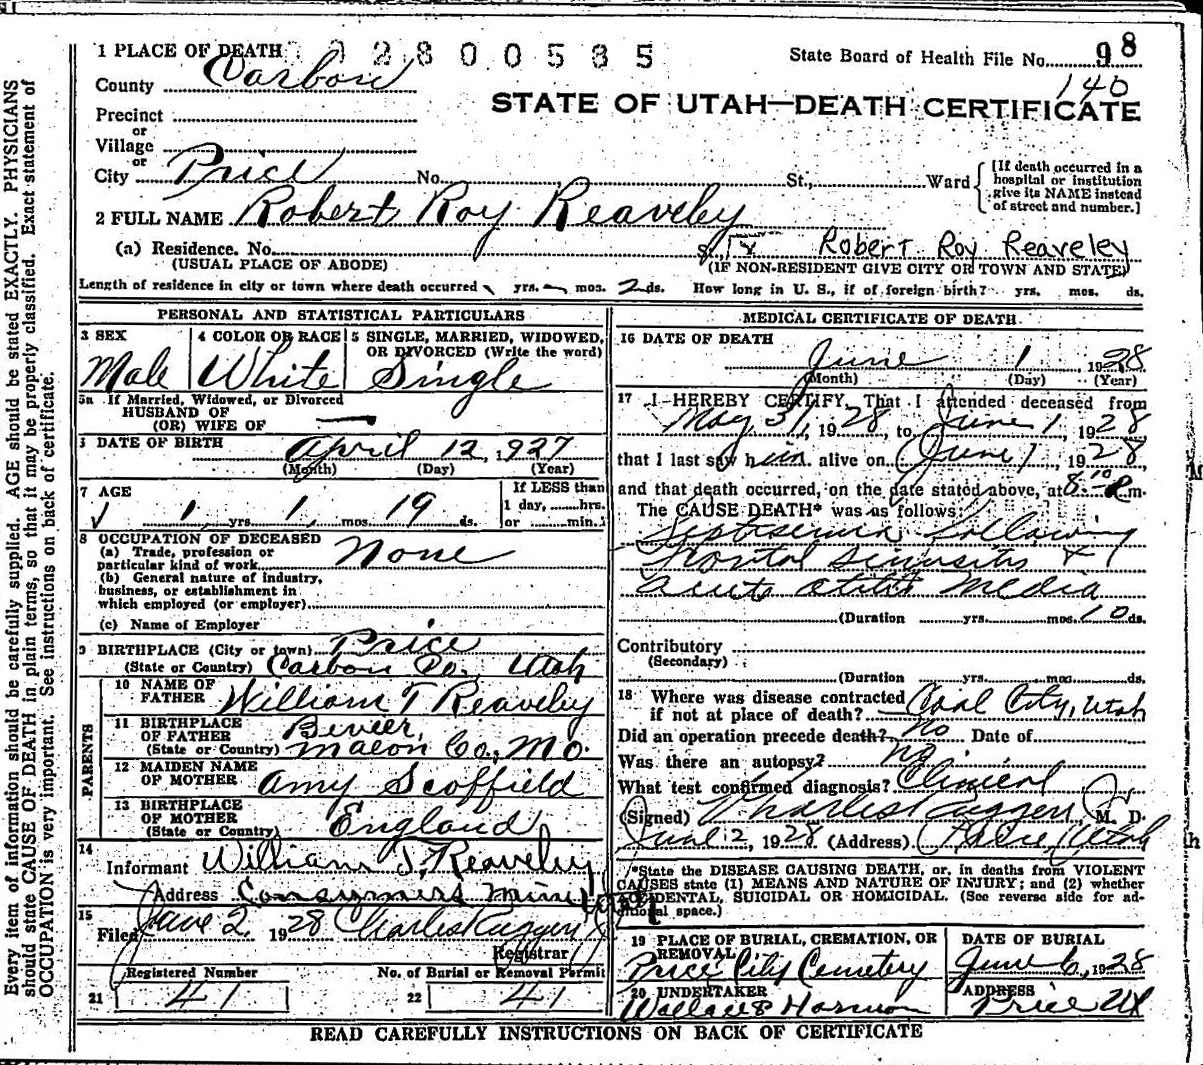 1 PLACE OF DEATH 2800535 State Board of Health File No. 98
County Carbon 140
STATE OF UTAH—DEATH CERTIFICATE
Precinct
or
Village
or
City Price No. St., Ward
[If death occurred in a hospital or institution give its NAME instead of street and number.]
2 FULL NAME Robert Roy Reaveley
(a) Residence. No. Robert Roy Reaveley
(USUAL PLACE OF ABODE) (IF NON-RESIDENT GIVE CITY OR TOWN AND STATE)
Length of residence in city or town where death occurred yrs. mos. 2 ds. How long in U. S., if of foreign birth? yrs. mos. ds.
PERSONAL AND STATISTICAL PARTICULARS
3 SEX Male
4 COLOR OR RACE White
5 SINGLE, MARRIED, WIDOWED, OR DIVORCED (Write the word) Single
5a If Married, Widowed, or Divorced
HUSBAND OF
(OR) WIFE OF —
DATE OF BIRTH April 12, 1927
(Month) (Day) (Year)
7 AGE 1 yrs. 1 mos. 19 ds.
If LESS than
1 day, hrs.
or min.
8 OCCUPATION OF DECEASED
(a) Trade, profession or
particular kind of work None
(b) General nature of industry,
business, or establishment in
which employed (or employer)
(c) Name of Employer
9 BIRTHPLACE (City or town) Price
(State or Country) Carbon Co., Utah
PARENTS
10 NAME OF FATHER William T Reaveley
11 BIRTHPLACE OF FATHER Bevier,
(State or Country) Macon Co., Mo.
12 MAIDEN NAME OF MOTHER Amy Scoffield
13 BIRTHPLACE OF MOTHER
(State or Country) England
14
Informant William T. Reaveley
Address Consumers Mine Utah
15
Filed June 2, 1928
Registrar
Registered Number
21 41
No. of Burial or Removal Permit
22 41
MEDICAL CERTIFICATE OF DEATH
16 DATE OF DEATH
June 1 1928
(Month) (Day) (Year)
17 I HEREBY CERTIFY, That I attended deceased from
May 31, 1928, to June 1, 1928
that I last saw him alive on June 1, 1928
and that death occurred, on the date stated above, at 8:10 P.m.
The CAUSE DEATH* was as follows:
Septosemia following
Frontal sinusitis &
acute otitis media
(Duration yrs. mos. 10 ds.
Contributory
(Secondary)
(Duration yrs. mos. ds.
18 Where was disease contracted
if not at place of death? Coal City, Utah
Did an operation precede death? no Date of
Was there an autopsy? no.
What test confirmed diagnosis? Clinical
(Signed) Charles Ruggeri Jr M. D.
June 2, 1928 (Address) Price, Utah
*State the DISEASE CAUSING DEATH, or, in deaths from VIOLENT
CAUSES state (1) MEANS AND NATURE OF INJURY; and (2) whether
ACCIDENTAL, SUICIDAL OR HOMICIDAL. (See reverse side for ad-
ditional space.)
19 PLACE OF BURIAL, CREMATION, OR REMOVAL
Price City Cemetery
DATE OF BURIAL
June 6, 1928
20 UNDERTAKER
Wallace & Harmon
ADDRESS
Price Ut
READ CAREFULLY INSTRUCTIONS ON BACK OF CERTIFICATE
Every item of information should be carefully supplied. AGE should be stated EXACTLY. PHYSICIANS
should state CAUSE OF DEATH in plain terms, so that it may be properly classified. Exact statement of
OCCUPATION is very important. See instructions on back of certificate.